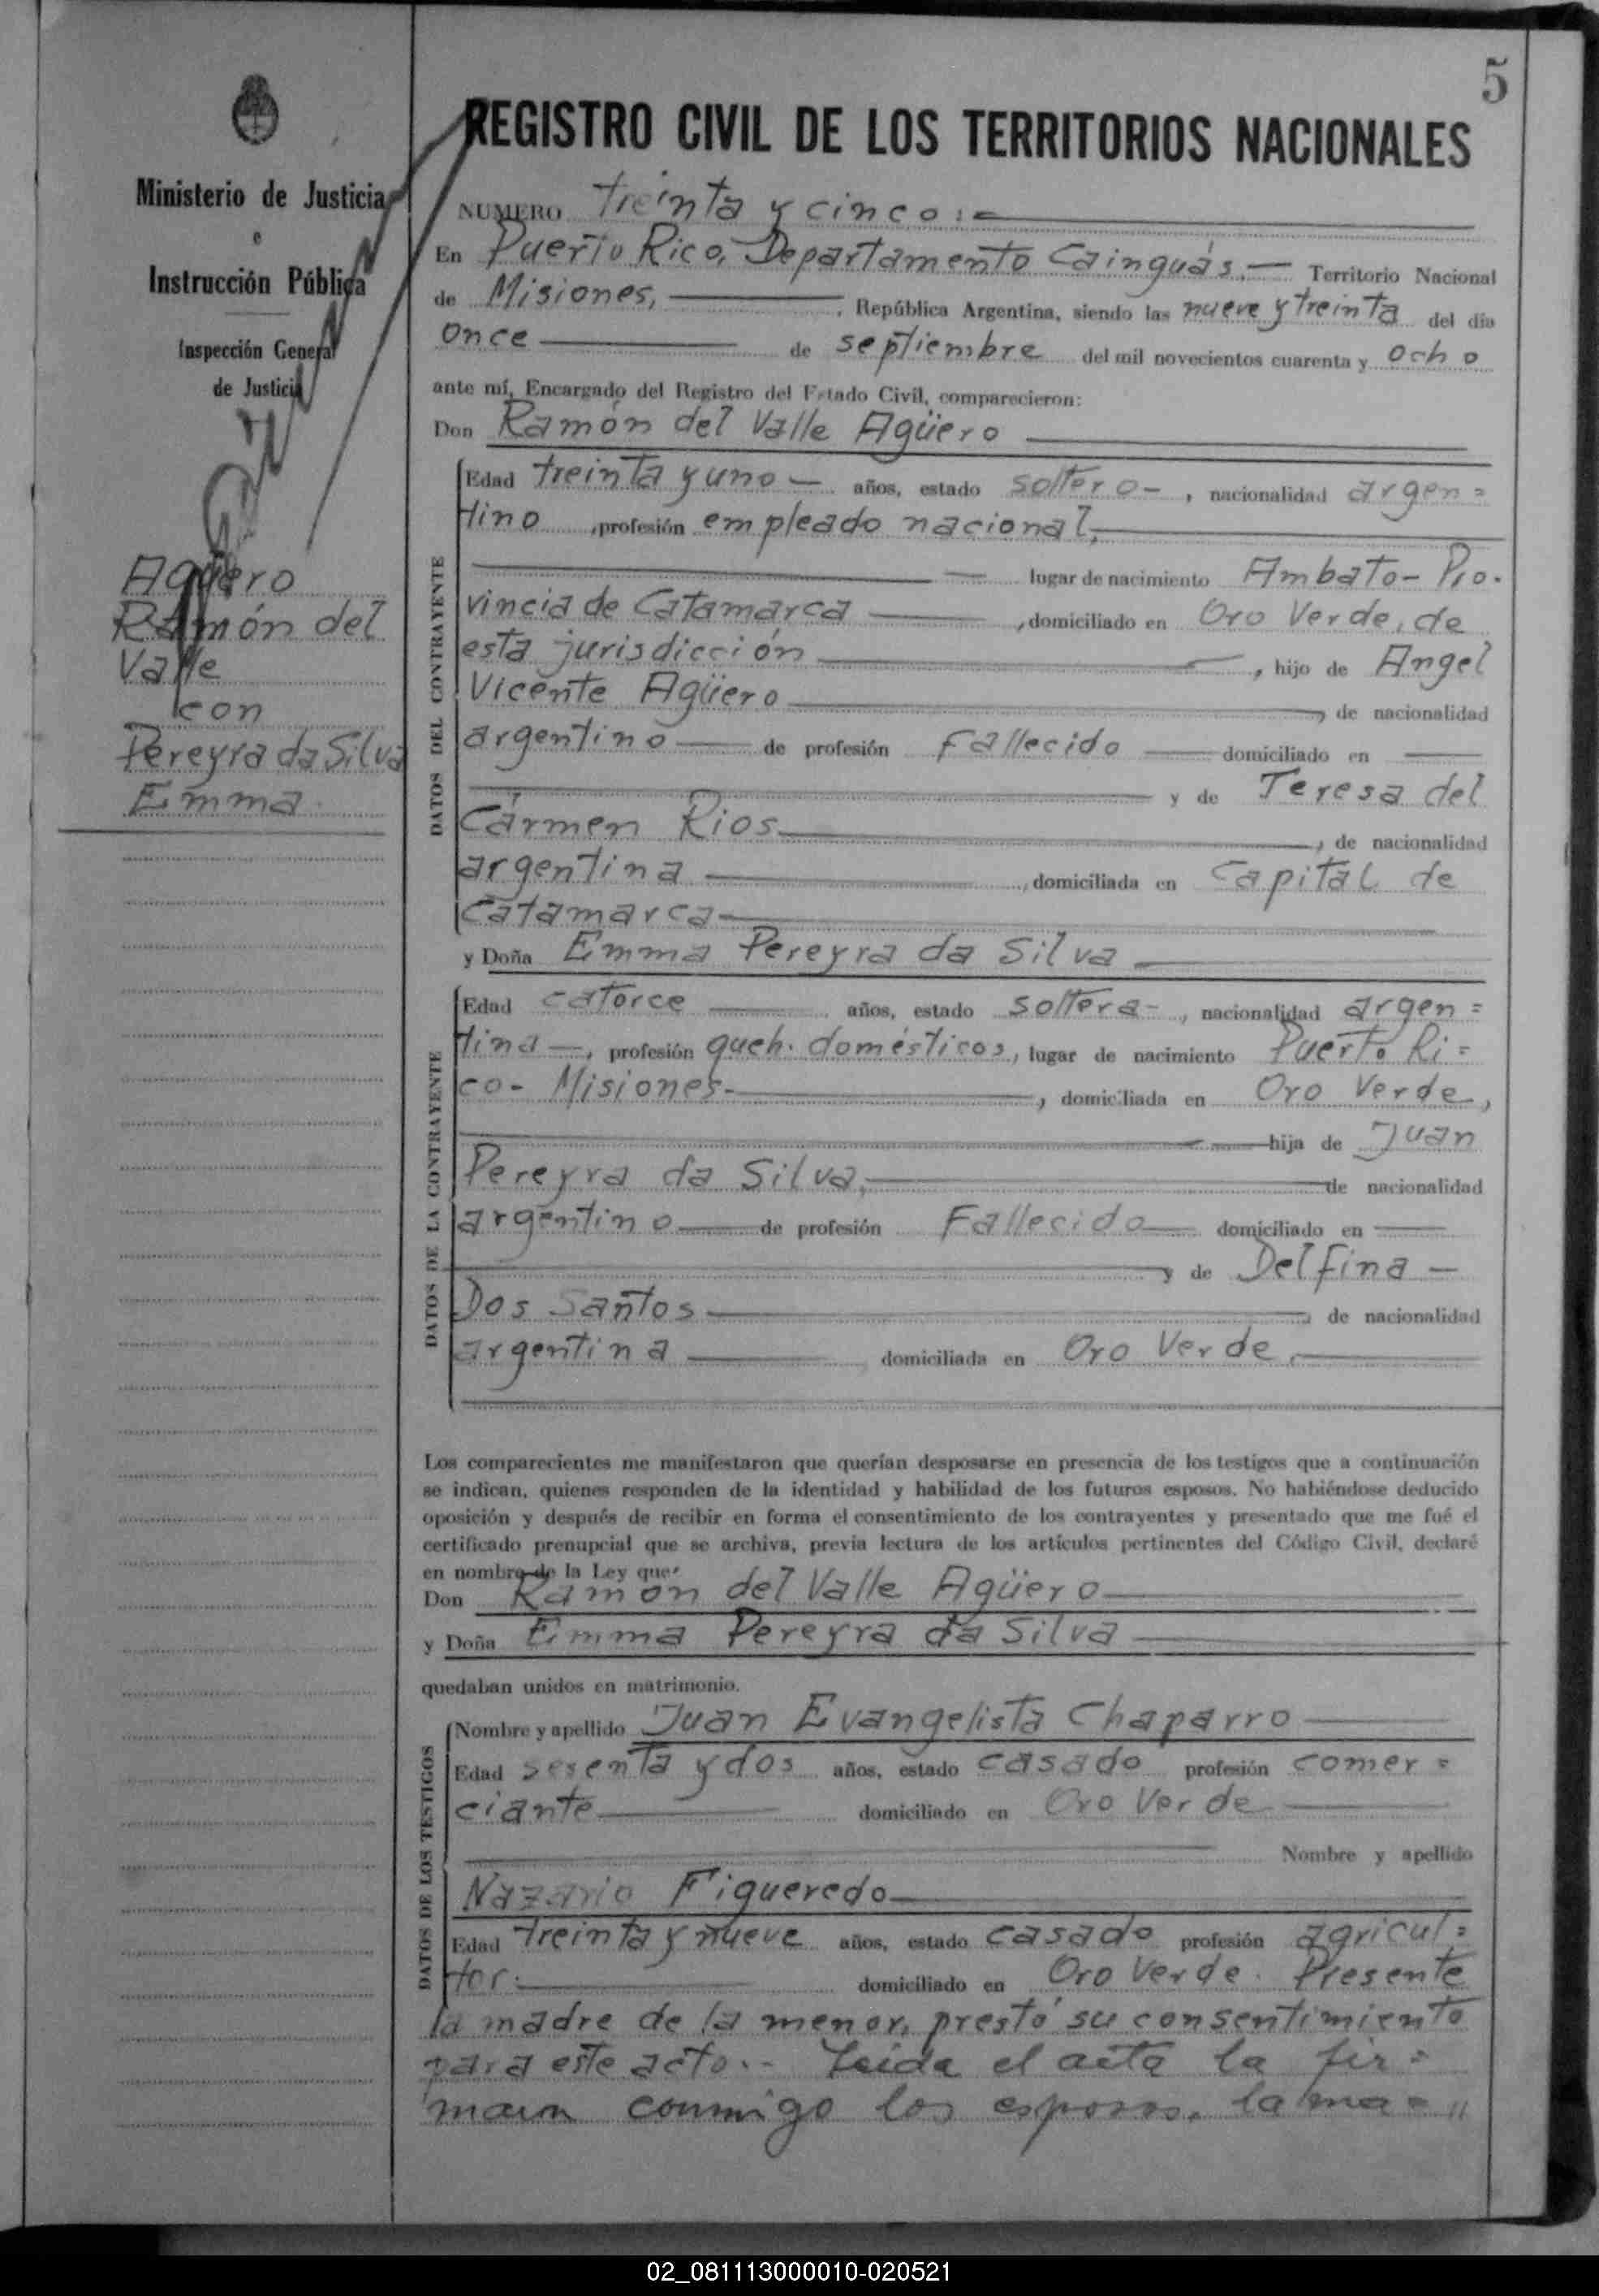 5
Ministerio de Justicia
e
Instrucción Pública
Inspección General
de Justicia
Agüero
Ramón del
Valle
con
Pereyra da Silva
Emma
REGISTRO CIVIL DE LOS TERRITORIOS NACIONALES
NUMERO treinta y cinco:=
En Puerto Rico, Departamento Cainguás.— Territorio Nacional
de Misiones, República Argentina, siendo las nueve y treinta del día
once de septiembre del mil novecientos cuarenta y ocho
ante mí, Encargado del Registro del Estado Civil, comparecieron:
Don Ramón del Valle Agüero
DATOS DEL CONTRAYENTE
Edad treinta y uno — años, estado soltero-, nacionalidad argen=
tino, profesión empleado nacional,
lugar de nacimiento Ambato- Pro.
vincia de Catamarca, domiciliado en Oro Verde, de
esta jurisdicción, hijo de Angel
Vicente Agüero, de nacionalidad
argentino de profesión Fallecido domiciliado en
y de Teresa del
Cármen Rios, de nacionalidad
argentina, domiciliada en Capital de
Catamarca
y Doña Emma Pereyra da Silva
DATOS DE LA CONTRAYENTE
Edad catorce años, estado soltera-, nacionalidad argen=
tina—, profesión queh. domésticos, lugar de nacimiento Puerto Ri=
co- Misiones-, domiciliada en Oro Verde,
hija de Juan
Pereyra da Silva, de nacionalidad
argentino de profesión Fallecido domiciliado en
y de Delfina —
Dos Santos, de nacionalidad
argentina domiciliada en Oro Verde.
Los comparecientes me manifestaron que querían desposarse en presencia de los testigos que a continuación
se indican, quienes responden de la identidad y habilidad de los futuros esposos. No habiéndose deducido
oposición y después de recibir en forma el consentimiento de los contrayentes y presentado que me fué el
certificado prenupcial que se archiva, previa lectura de los artículos pertinentes del Código Civil, declaré
en nombre de la Ley que:
Don Ramón del Valle Agüero
y Doña Emma Pereyra da Silva
quedaban unidos en matrimonio.
DATOS DE LOS TESTIGOS
Nombre y apellido Juan Evangelista Chaparro
Edad sesenta y dos años, estado casado profesión comer=
ciante domiciliado en Oro Verde
Nombre y apellido
Nazario Figueredo
Edad treinta y nueve años, estado casado profesión agricul=
tor. domiciliado en Oro Verde. Presente
la madre de la menor, prestó su consentimiento
para este acto.- Leida el acta la fir=
man conmigo los esposos, la ma="
02_081113000010-020521